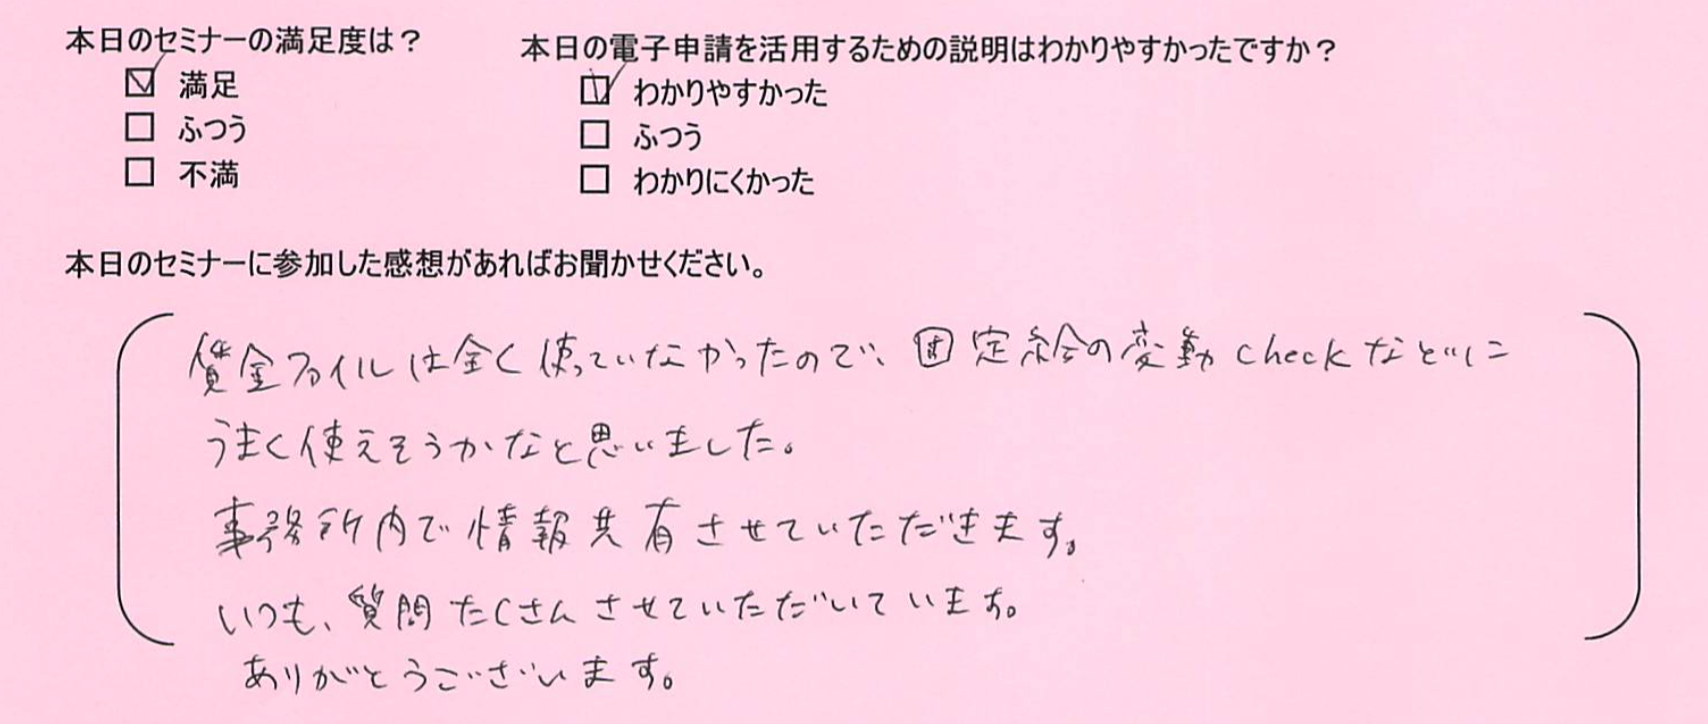 本日のセミナーの満足度は？
☑ 満足
☐ ふつう
☐ 不満
本日の電子申請を活用するための説明はわかりやすかったですか？
☑ わかりやすかった
☐ ふつう
☐ わかりにくかった
本日のセミナーに参加した感想があればお聞かせください。
賃金ファイルは全く使っていなかったので、固定給の変動checkなどに
うまく使えそうかなと思いました。
事務所内で情報共有させていただきます。
いつも、質問たくさんさせていただいています。
ありがとうございます。